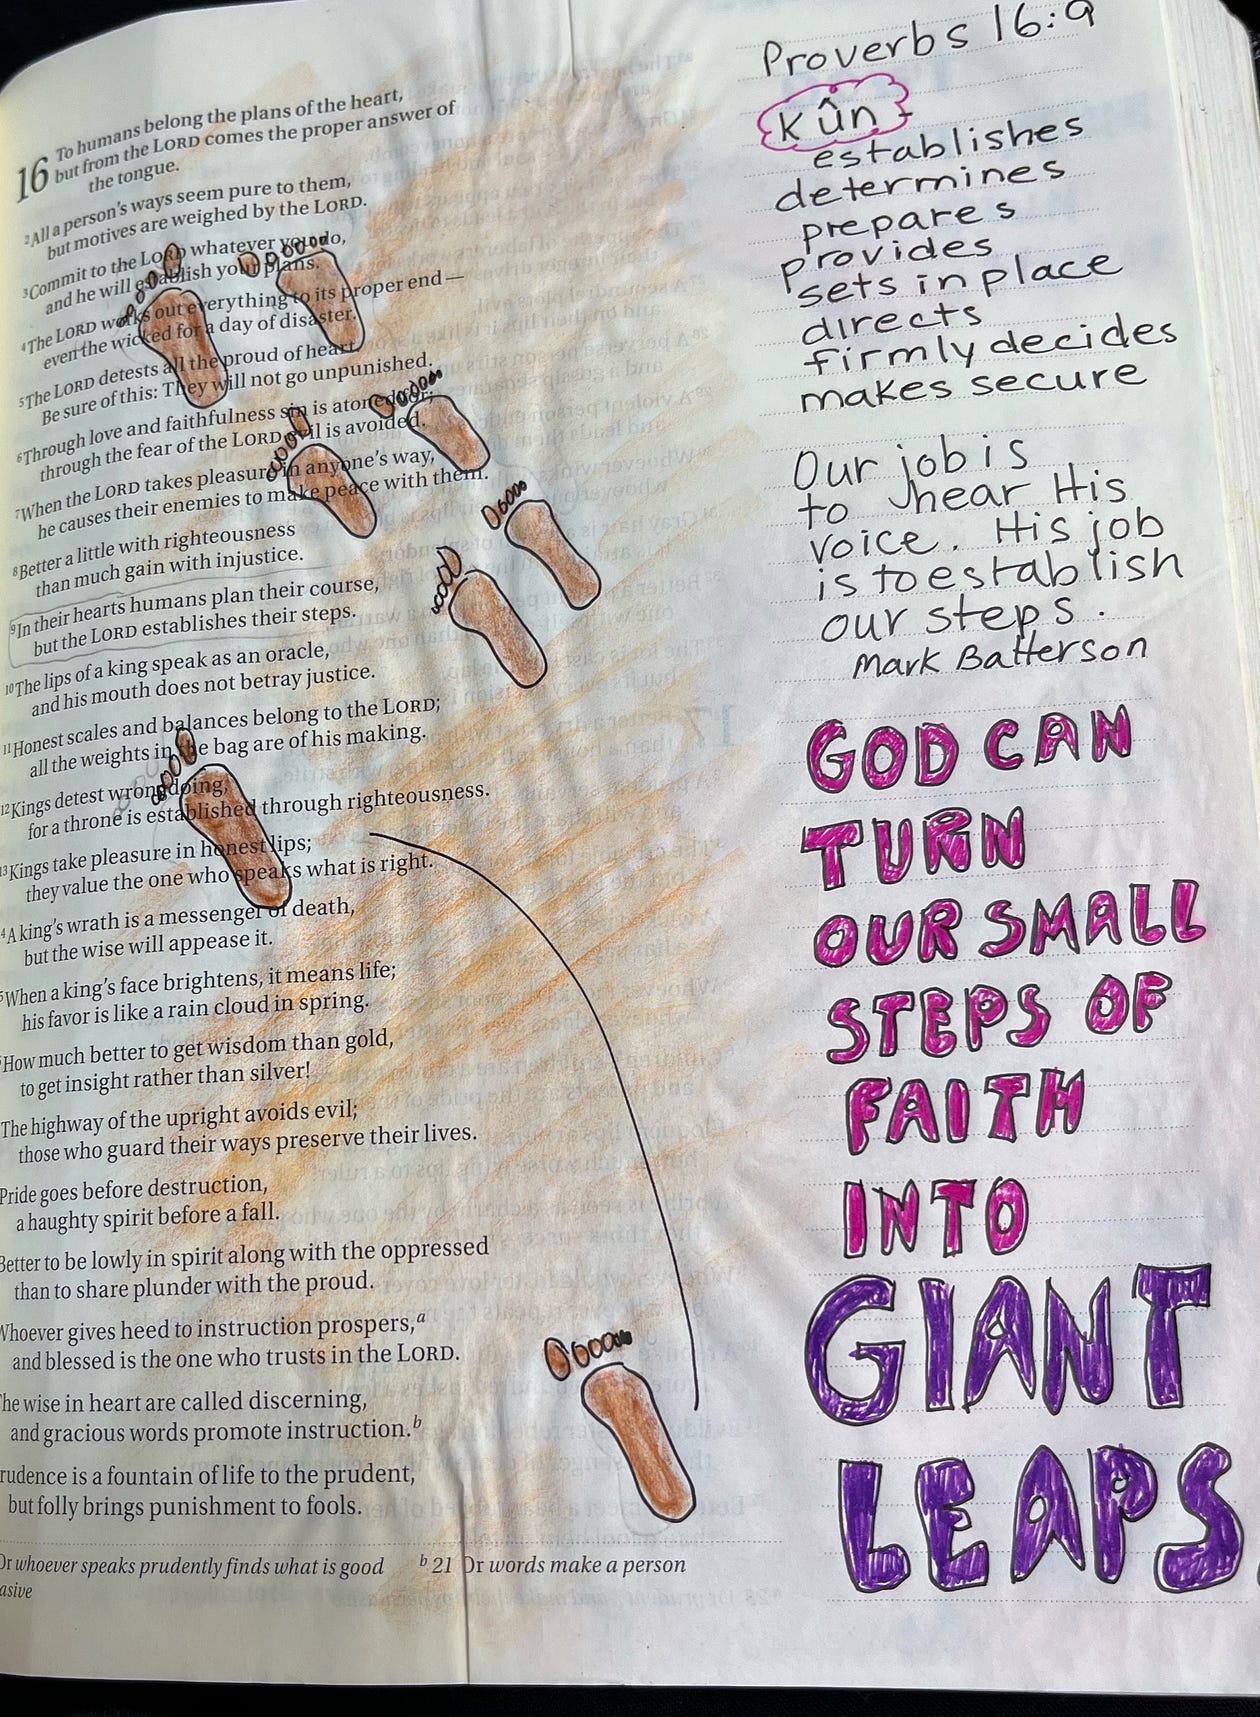 16 To humans belong the plans of the heart,
but from the LORD comes the proper answer of
the tongue.
2All a person's ways seem pure to them,
but motives are weighed by the LORD.
3Commit to the LORD whatever you do,
and he will establish your plans.
4The LORD works out everything to its proper end—
even the wicked for a day of disaster.
5The LORD detests all the proud of heart.
Be sure of this: They will not go unpunished.
6Through love and faithfulness sin is atoned for;
through the fear of the LORD evil is avoided.
7When the LORD takes pleasure in anyone's way,
he causes their enemies to make peace with them.
8Better a little with righteousness
than much gain with injustice.
9In their hearts humans plan their course,
but the LORD establishes their steps.
10The lips of a king speak as an oracle,
and his mouth does not betray justice.
11Honest scales and balances belong to the LORD;
all the weights in the bag are of his making.
12Kings detest wrongdoing,
for a throne is established through righteousness.
13Kings take pleasure in honest lips;
they value the one who speaks what is right.
4A king's wrath is a messenger of death,
but the wise will appease it.
5When a king's face brightens, it means life;
his favor is like a rain cloud in spring.
How much better to get wisdom than gold,
to get insight rather than silver!
The highway of the upright avoids evil;
those who guard their ways preserve their lives.
Pride goes before destruction,
a haughty spirit before a fall.
Better to be lowly in spirit along with the oppressed
than to share plunder with the proud.
Whoever gives heed to instruction prospers,a
and blessed is the one who trusts in the LORD.
he wise in heart are called discerning,
and gracious words promote instruction.b
rudence is a fountain of life to the prudent,
but folly brings punishment to fools.
Or whoever speaks prudently finds what is good b 21 Or words make a person
asive
Proverbs 16:9
kûn -
establishes
determines
prepares
provides
sets in place
directs
firmly decides
makes secure
Our job is
to hear His
voice. His job
is to establish
our steps.
Mark Batterson
GOD CAN
TURN
OUR SMALL
STEPS OF
FAITH
INTO
GIANT
LEAPS.